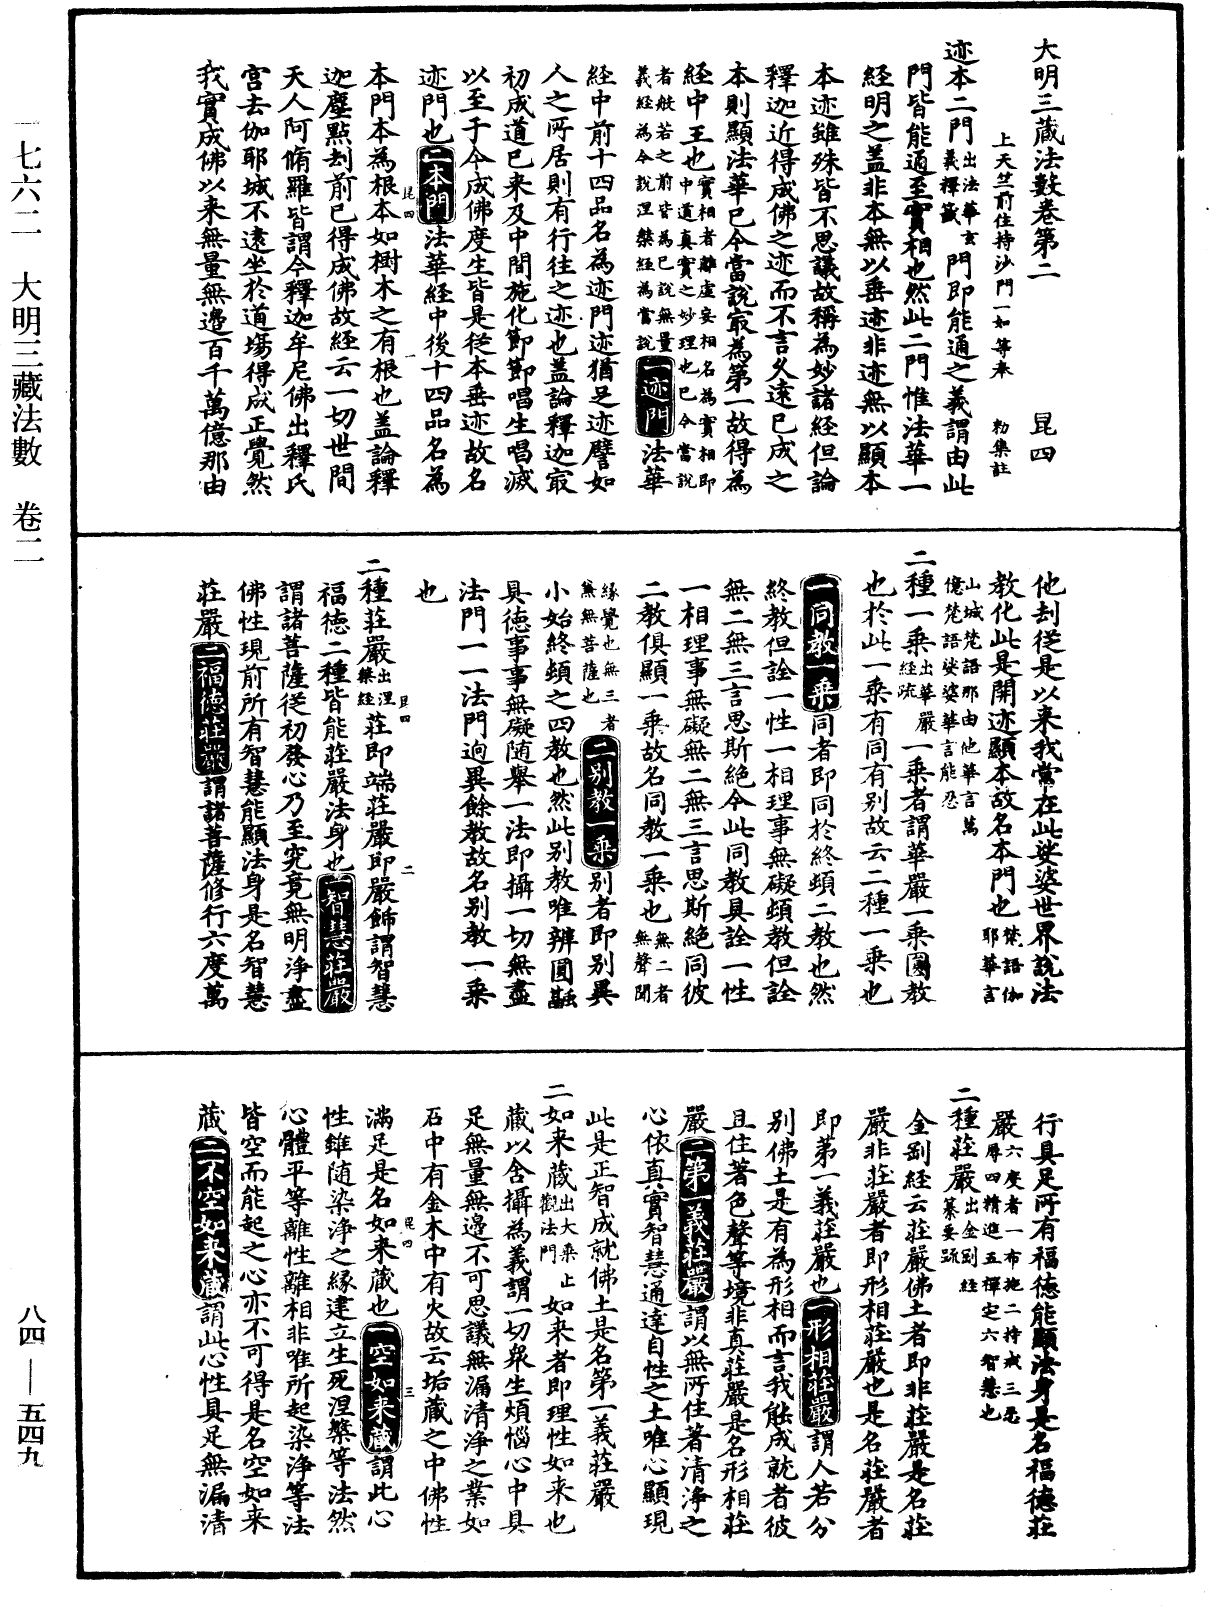 一七六二 大明三藏法數 卷二
大明三藏法數卷第二 昆四
上天竺前住持沙門一如等奉 勑集註
迹本二門出法華玄義釋籤門即能通之義謂由此
門皆能通至實相也然此二門惟法華一
經明之蓋非本無以垂迹非迹無以顯本
本迹雖殊皆不思議故稱為妙諸經但論
釋迦近得成佛之迹而不言久遠已成之
本則顯法華已今當說冣為第一故得為
經中王也實相者離虛妄相名為實相即中道真實之妙理也已今當說
者般若之前皆為已說無量義經為今說涅槃經為當說一迹門法華
經中前十四品名為迹門迹猶足迹譬如
人之所居則有行往之迹也蓋論釋迦冣
初成道已来及中間施化節節唱生唱滅
以至于今成佛度生皆是從本垂迹故名
迹門也二本門法華經中後十四品名為
昆四 一
本門本為根本如樹木之有根也蓋論釋
迦塵點刦前已得成佛故經云一切世間
天人阿脩羅皆謂今釋迦牟尼佛出釋氏
宮去伽耶城不遠坐於道場得成正覺然
我實成佛以来無量無邊百千萬億那由
他刦從是以来我常在此娑婆世界說法
教化此是開迹顯本故名本門也梵語伽耶華言
山城梵語那由他華言萬億梵語娑婆華言能忍
二種一乘出華嚴經疏一乘者謂華嚴一乘圓教
也於此一乘有同有别故云二種一乘也
一同教一乘同者即同於終頓二教也然
終教但詮一性一相理事無礙頓教但詮
無二無三言思斯絕今此同教具詮一性
一相理事無礙無二無三言思斯絕同彼
二教俱顯一乘故名同教一乘也無二者無聲聞
緣覺也無三者無菩薩也二别教一乘别者即别異
小始終頓之四教也然此别教唯辨圓融
具德事事無礙随舉一法即攝一切無盡
法門一一法門逈異餘教故名别教一乘
也
二種莊嚴出涅槃經莊即端莊嚴即嚴飾謂智慧
昆四 二
福德二種皆能莊嚴法身也一智慧莊嚴
謂諸菩薩從初發心乃至究竟無明淨盡
佛性現前所有智慧能顯法身是名智慧
莊嚴二福德莊嚴謂諸菩薩修行六度萬
行具足所有福德能顯法身是名福德莊
嚴六度者一布施二持戒三忍辱四精進五禪定六智慧也
二種莊嚴出金剛經纂要疏
金剛經云莊嚴佛土者即非莊嚴是名莊
嚴非莊嚴者即形相莊嚴也是名莊嚴者
即第一義莊嚴也一形相莊嚴謂人若分
别佛土是有為形相而言我能成就者彼
且住著色聲等境非真莊嚴是名形相莊
嚴二第一義莊嚴謂以無所住著清淨之
心依真實智慧通達自性之土唯心顯現
此是正智成就佛土是名第一義莊嚴
二如来藏出大乘止觀法門如来者即理性如来也
藏以含攝為義謂一切衆生煩惱心中具
足無量無邊不可思議無漏清淨之業如
石中有金木中有火故云垢藏之中佛性
滿足是名如来藏也一空如来藏謂此心
昆四 三
性雖随染淨之緣建立生死涅槃等法然
心體平等離性離相非唯所起染淨等法
皆空而能起之心亦不可得是名空如来
藏二不空如来藏謂此心性具足無漏清
八四—五四九